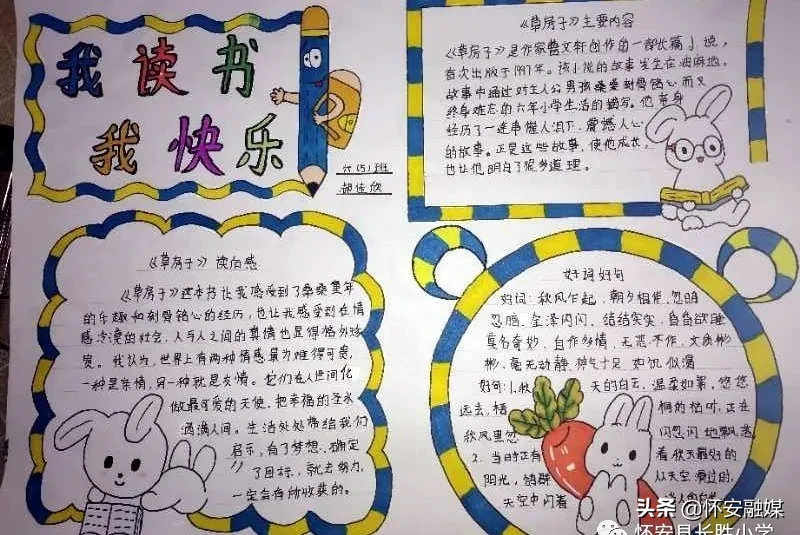 我读书
我快乐
六(5)班
《草房子》主要内容
《草房子》是作家曹文轩创作的一部长篇小说,
首次出版于1997年。该小说的故事发生在油麻地。
故事中通过对主人公男孩桑桑刻骨铭心而又
终身难忘的六年小学生活的描写。他亲身
经历了一连串催人泪下、震撼人心
的故事。正是这些故事,使他成长,
也让他明白了很多道理。
《草房子》读后感
《草房子》这本书让我感受到了桑桑童年
的乐趣和刻骨铭心的经历,也让我感受到在情
感冷漠的社会,人与人之间的真情也显得格外珍
贵。我认为,世界上有两种情感最为难得可贵,
一种是亲情,另一种就是友情。它们在人世间化
做最可爱的天使,把幸福的圣水
洒满人间。生活处处带给我们
启示,有了梦想、确定
了目标,就去努力,
一定会有所收获的。
好词好句
好词:秋风乍起、朝夕相伴、忽明
忽暗、金泽闪闪、结结实实、昏昏欲睡
莫名奇妙、自作多情、无恶不作、文质彬
彬、毫无动静、神气十足、如饥似渴
好句:1.秋 天的白云,温柔如絮,悠悠
远去,梧 桐的枯叶,正在
秋风里忽 闪忽闪地飘落
2.当时正有 着秋天最好的
阳光,鸽群 从天空滑过的,
天空中闪着
头条@怀安融媒
怀安县长胜小学